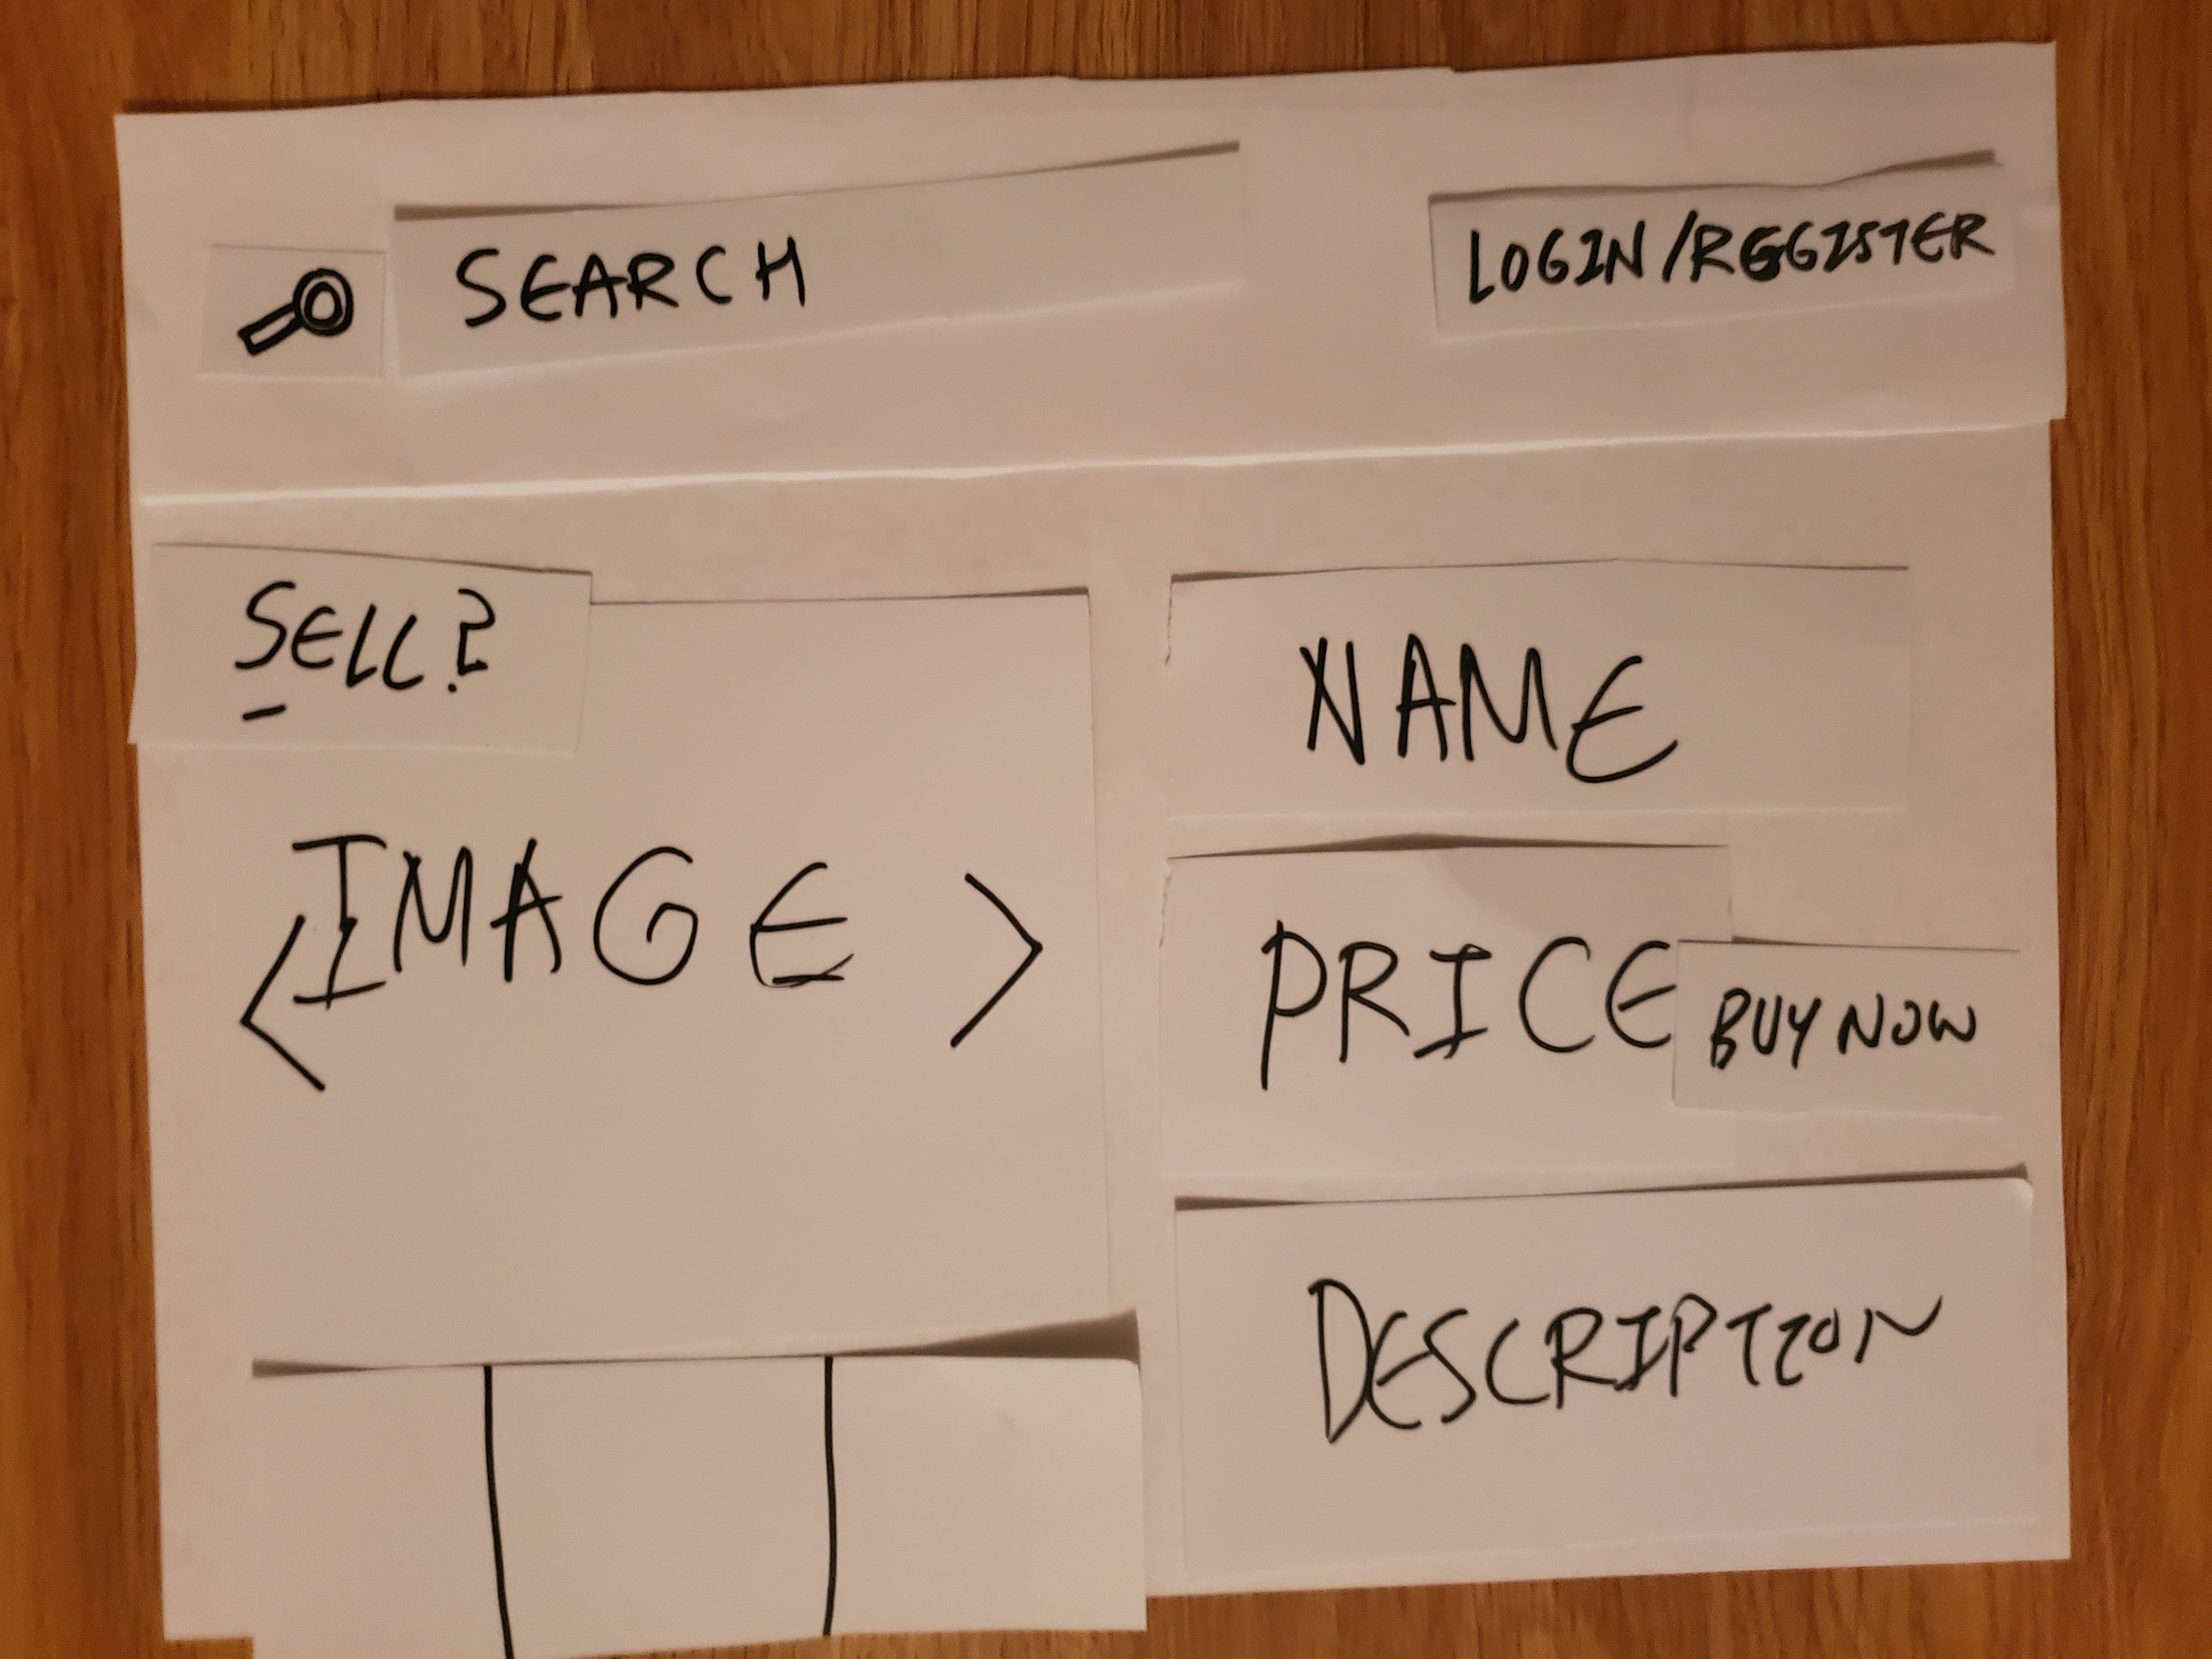 SEARCH
LOGIN/REGISTER
SELL?
< IMAGE >
NAME
PRICE
BUY NOW
DESCRIPTION